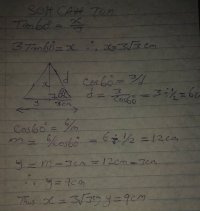 SOH CAH TOA
Tan60° = x/3
3Tan60° = x ∴ x=3√3cm
x d
60°
y 3cm
cos60° = 3/d
d = 3/cos60° = 3÷1/2 = 6cm
cos60° = 6/m
m = 6/cos60° = 6÷1/2 = 12cm
y = m-3cm = 12cm-3cm
∴ y = 9cm
Thus x = 3√3cm y=9cm